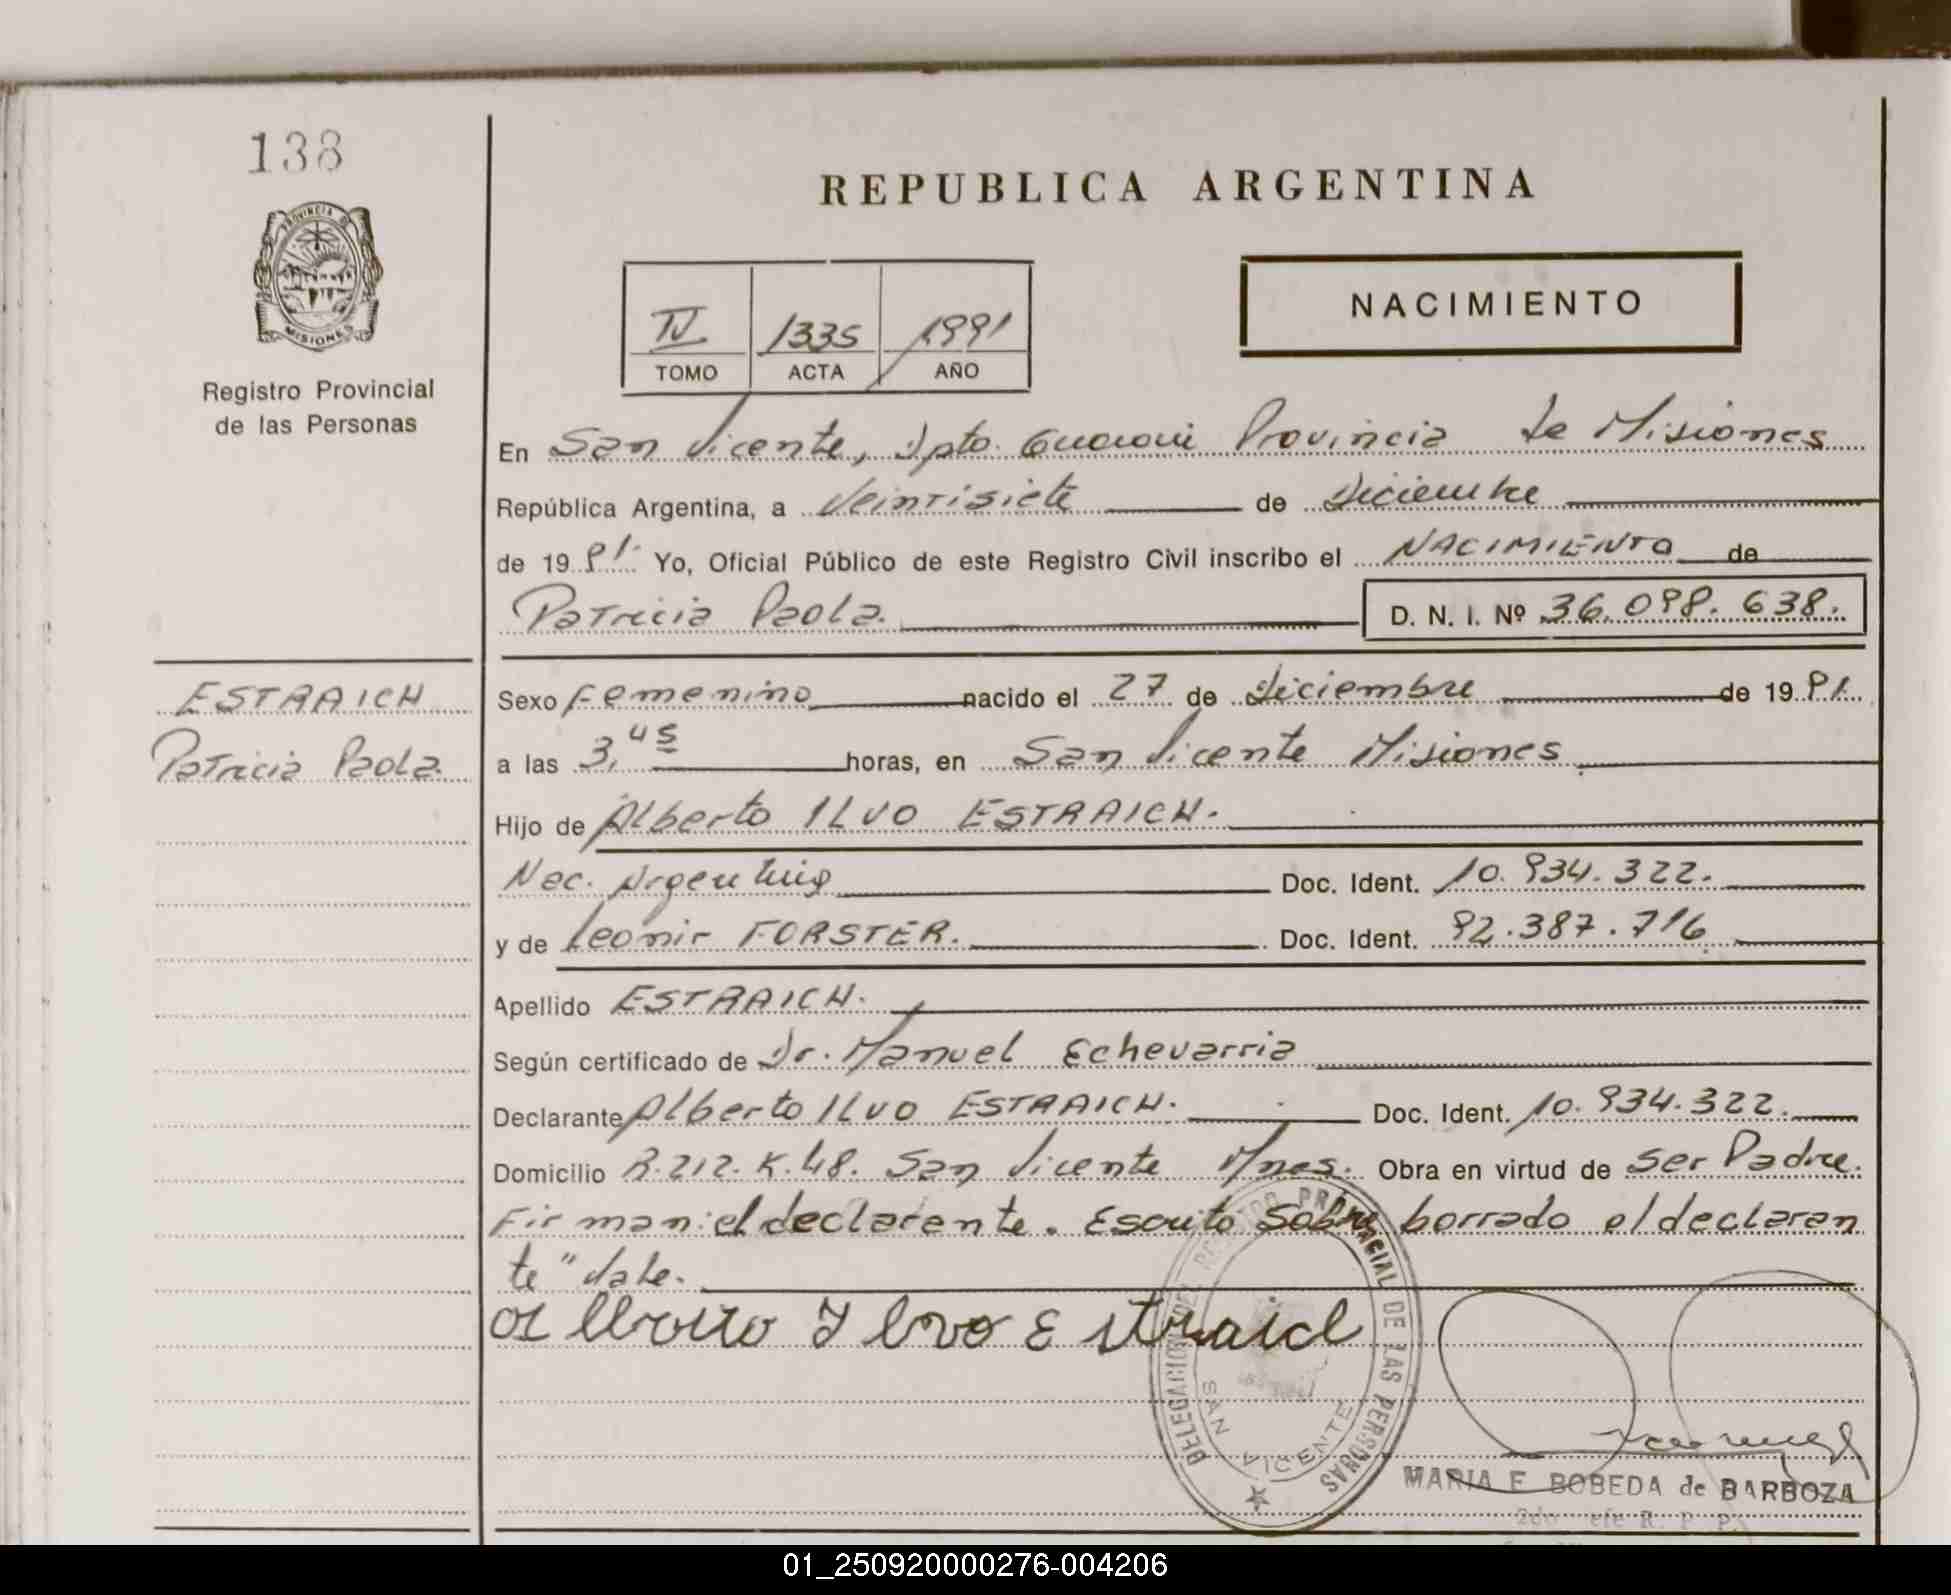 138
REPUBLICA ARGENTINA
PROVINCIA DE
MISIONES
Registro Provincial
de las Personas
NACIMIENTO
IV 1335 1991
TOMO ACTA AÑO
En San Vicente, Dpto. Guaraní Provincia de Misiones
República Argentina, a Veintisiete de Diciembre
de 1991. Yo, Oficial Público de este Registro Civil inscribo el NACIMIENTO de
Patricia Paola. D. N. I. Nº 36.098.638.
ESTRAICH
Patricia Paola.
Sexo Femenino nacido el 27 de Diciembre de 1991.
a las 3,45 horas, en San Vicente Misiones
Hijo de Alberto ILVO ESTRAICH.
Nac. Argentino Doc. Ident. 10.934.322.
y de Leonir FORSTER. Doc. Ident. 92.387.716
Apellido ESTRAICH.
Según certificado de Dr. Manuel Echevarria
Declarante Alberto ILVO ESTRAICH. Doc. Ident. 10.934.322.
Domicilio R.212. K.48. San Vicente Mnes. Obra en virtud de ser Padre.
Firman: el declarante. Escrito sobre borrado el declaran
te" vale.
Alberto Ilvo Estraich
DELEGACION DEL REGISTRO PROVINCIAL DE LAS PERSONAS
SAN VICENTE
MARIA E BOBEDA de BARBOZA
2do Jefe R. P. P.
01_250920000276-004206